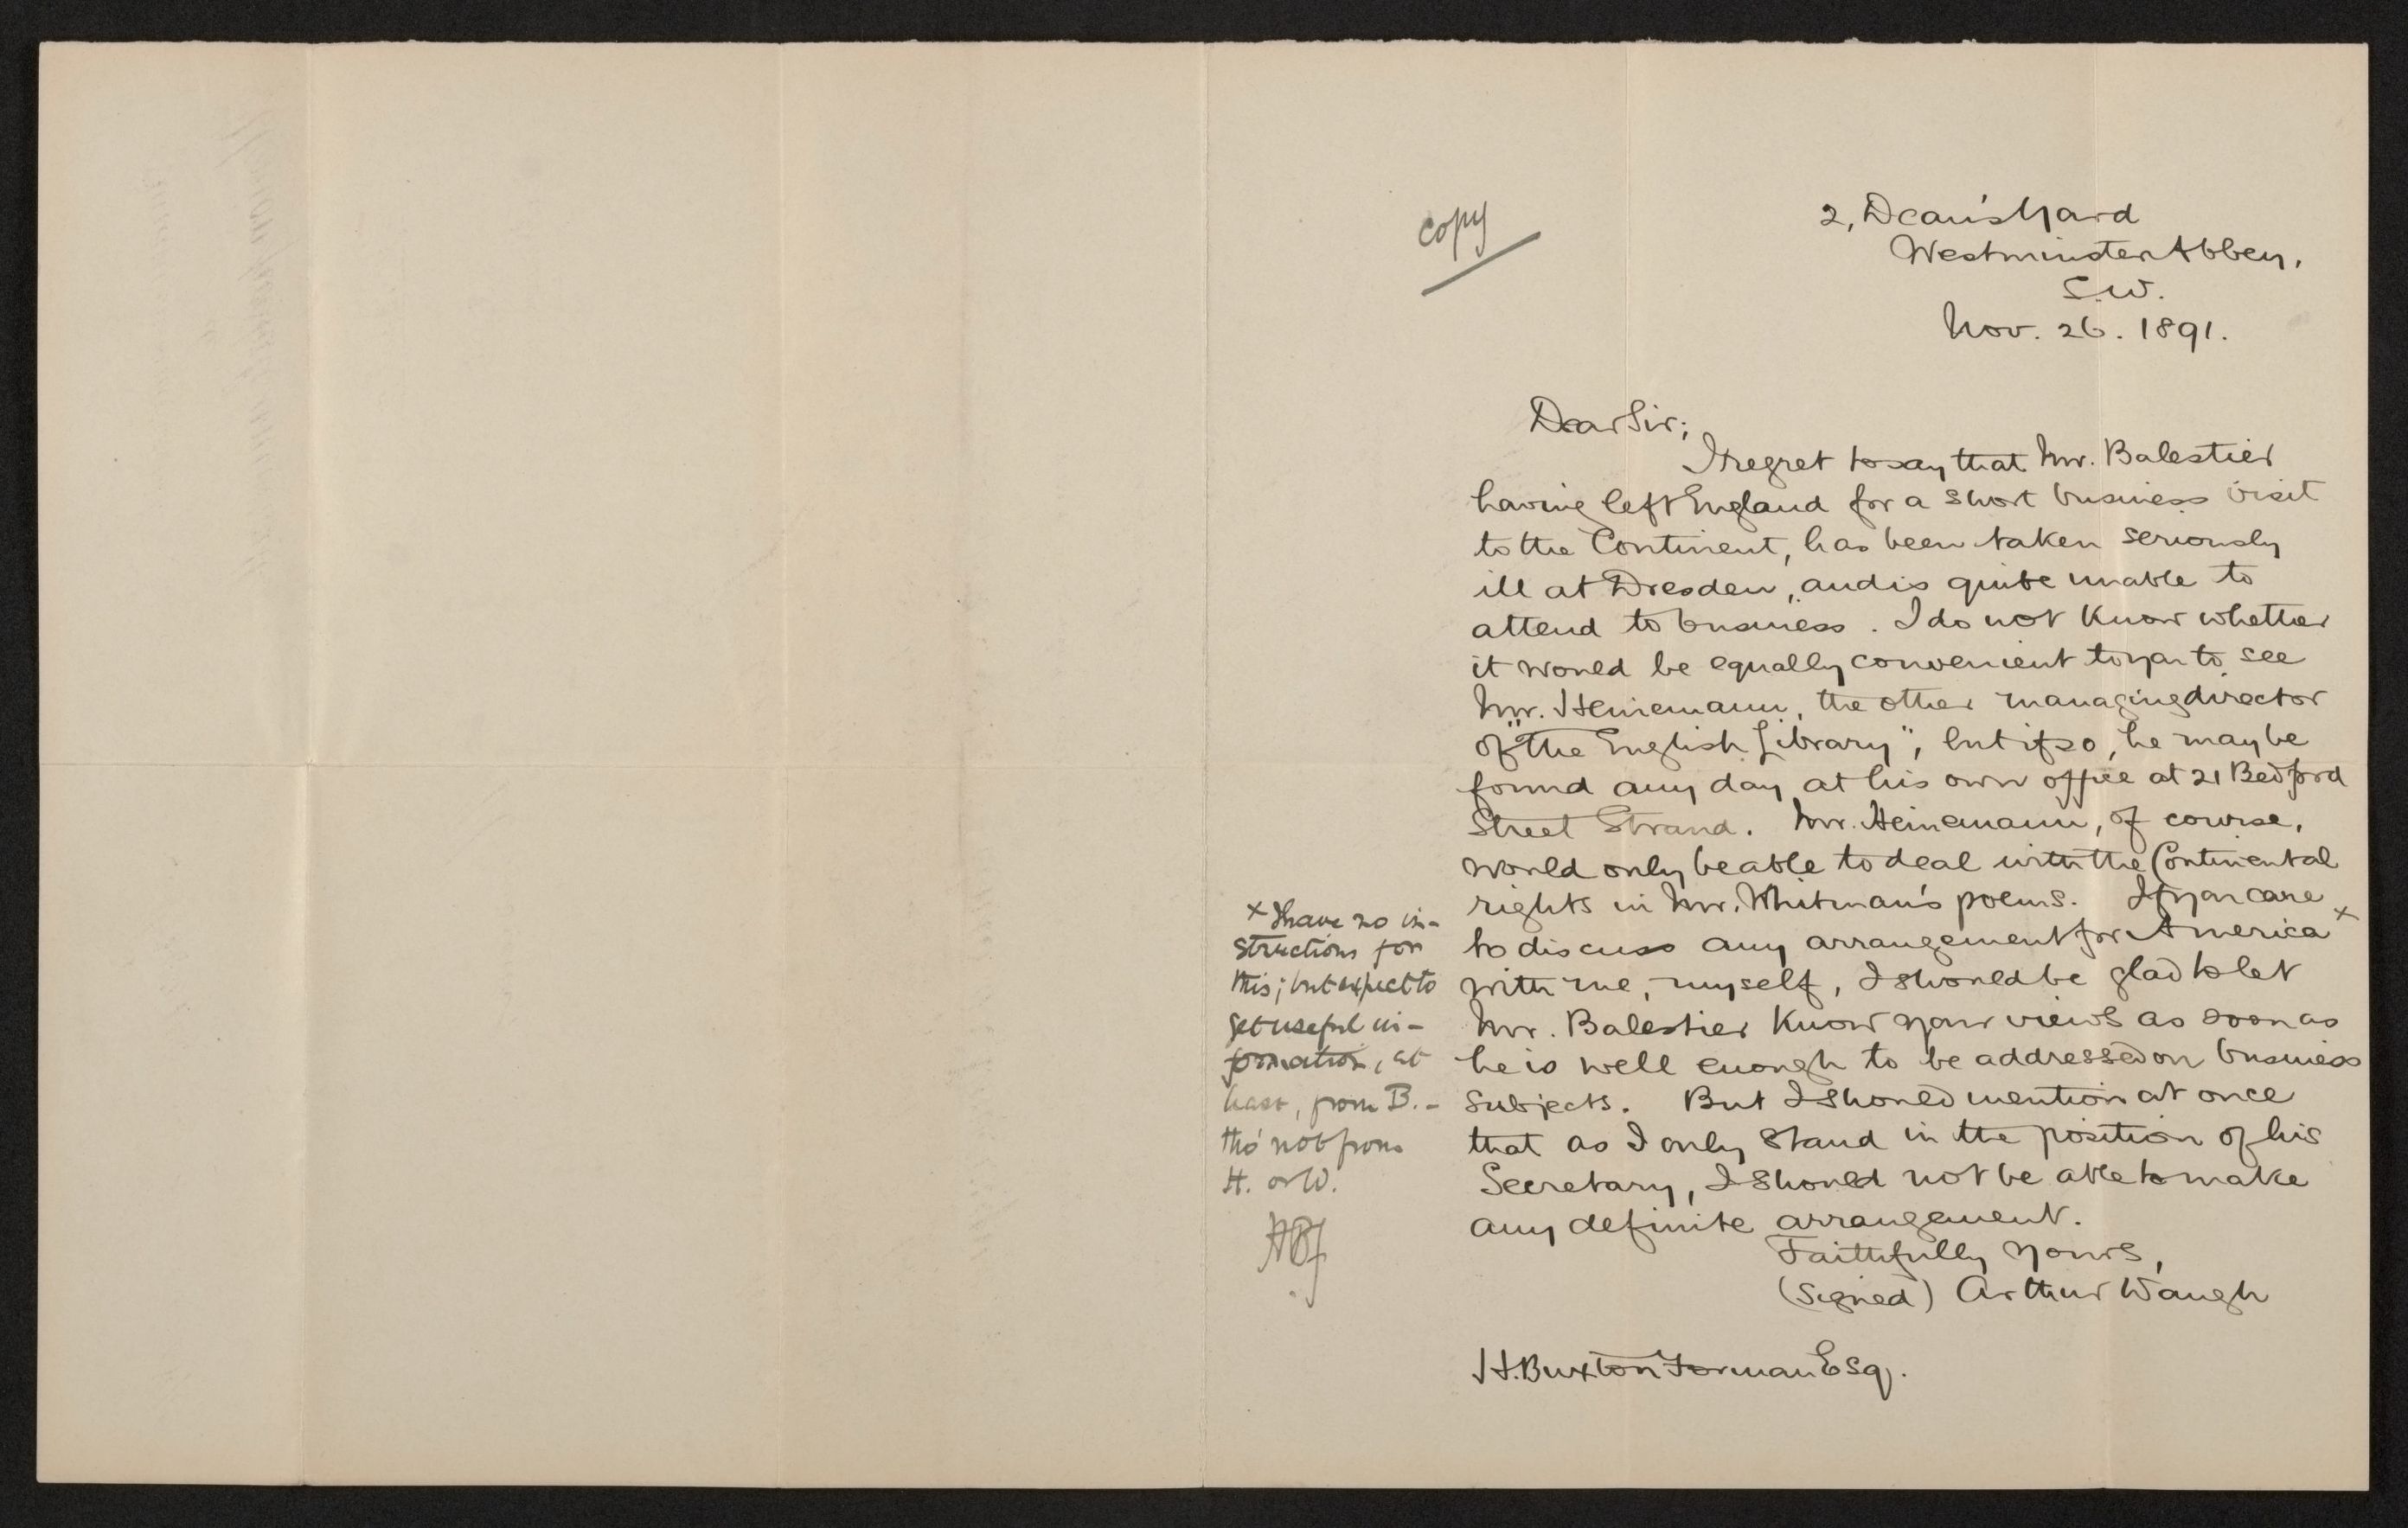 copy
2, Dean's Yard
Westminster Abbey,
S.W.
Nov. 26. 1891.
Dear Sir;
I regret to say that Mr. Balestier
having left England for a short business visit
to the Continent, has been taken seriously
ill at Dresden, and is quite unable to
attend to business. I do not know whether
it would be equally convenient to you to see
Mr. Heinemann, the other managing director
of "The English Library", but if so, he may be
found any day at his own office at 21 Bedford
Street Strand. Mr. Heinemann, of course,
would only be able to deal with the Continental
rights in Mr. Whitman's poems. If you care
to discuss any arrangement for America x
with me, myself, I should be glad to let
Mr. Balestier know your views as soon as
he is well enough to be addressed on business
subjects. But I should mention at once
that as I only stand in the position of his
Secretary, I should not be able to make
any definite arrangement.
Faithfully yours,
(signed) Arthur Waugh
H. Buxton Forman Esq.
x I have no in-
structions for
this; but expect to
get useful in-
formation, at
least, from B. -
tho' not from
H. or W.
HBF